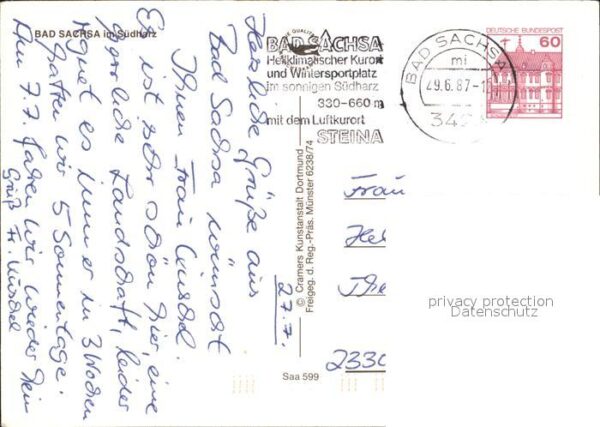 BAD SACHSA im Südharz
Herzliche Grüße aus
Bad Sachsa wünscht
Ihnen Frau
Es ist sehr schön hier, eine
herrliche Landschaft, leider
regnet es immer in 3 Wochen
hatten wir 5 Sonnentage.
Am 7.7. fahren wir wieder heim
Gruß Fr.
27.7.
© Cramers Kunstanstalt Dortmund
Freigeg. d. Reg.-Präs. Münster 6238/74
Saa 599
QUALITÄT
BAD SACHSA
Heilklimatischer Kurort
und Wintersportplatz
im sonnigen Südharz
330-660 m
mit dem Luftkurort
STEINA
BAD SACHSA
mi
29.6.87-1
342
DEUTSCHE BUNDESPOST
60
Frau
He
The
2330
privacy protection
Datenschutz